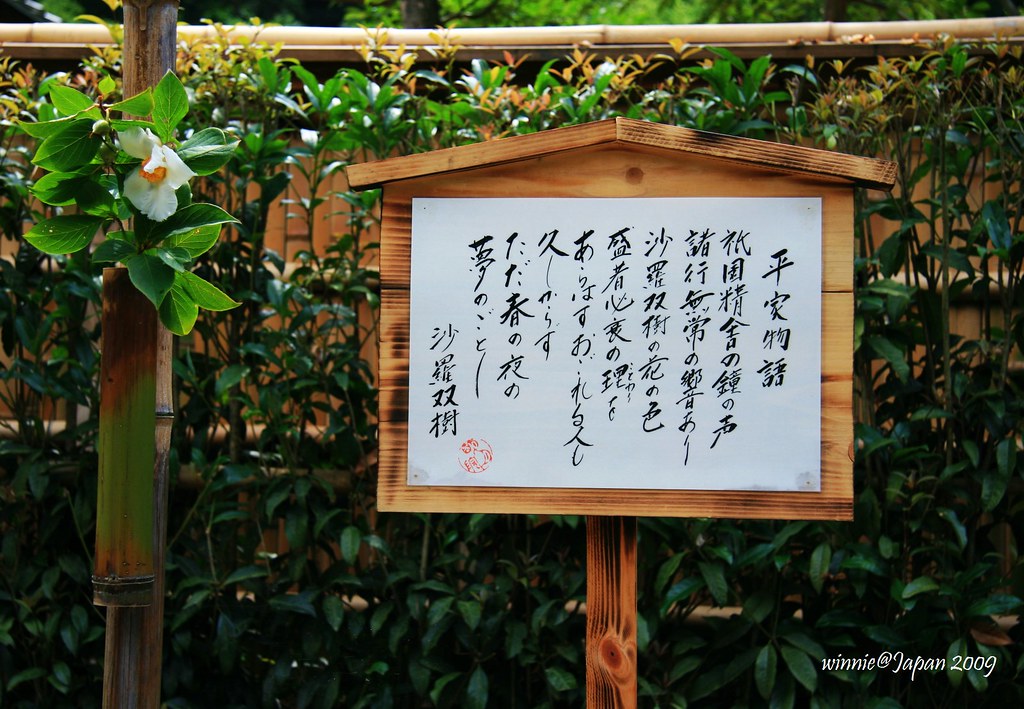 平家物語
祇園精舎の鐘の声
諸行無常の響あり
沙羅双樹の花の色
盛者必衰の理を
ことわり
あらはすおごれる人も
久しからず
ただ春の夜の
夢のごとし
沙羅双樹
winnie@Japan 2009